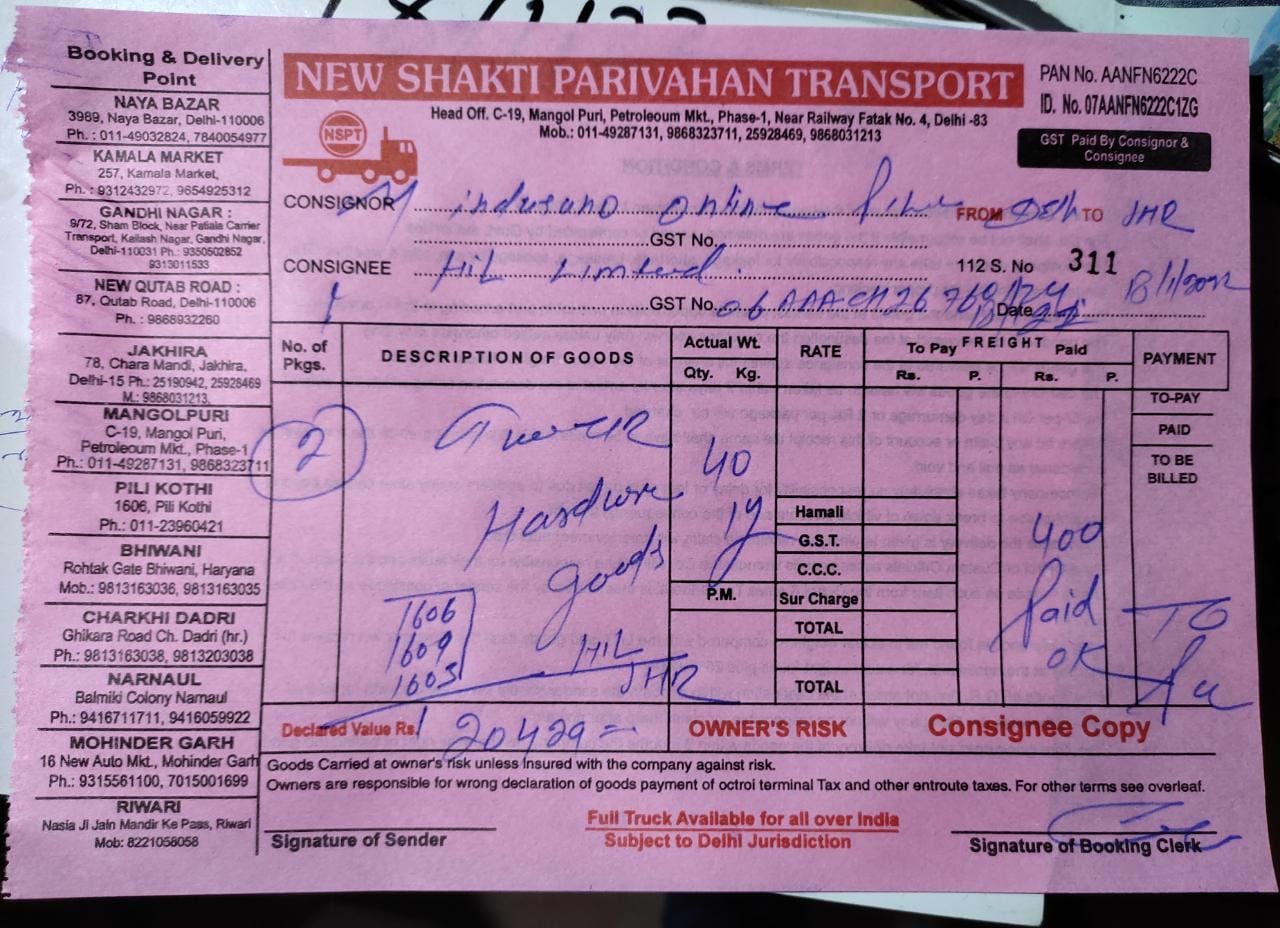 Booking & Delivery
Point
NAYA BAZAR
3989, Naya Bazar, Delhi-110006
Ph. : 011-49032824, 7840054977
KAMALA MARKET
257, Kamala Market,
Ph. : 9312432972, 9654925312
GANDHI NAGAR :
9/72, Sham Block, Near Patiala Carrier
Transport, Kailash Nagar, Gandhi Nagar,
Delhi-110031 Ph.: 9350502852
9313011533
NEW QUTAB ROAD :
87, Qutab Road, Delhi-110006
Ph. : 9868932260
JAKHIRA
78, Chara Mandi, Jakhira,
Delhi-15 Ph.: 25190942, 25928469
M.: 9868031213,
MANGOLPURI
C-19, Mangol Puri,
Petroleoum Mkt., Phase-1
Ph.: 011-49287131, 9868323711
PILI KOTHI
1606, Pili Kothi
Ph.: 011-23960421
BHIWANI
Rohtak Gate Bhiwani, Haryana
Mob.: 9813163036, 9813163035
CHARKHI DADRI
Ghikara Road Ch. Dadri (hr.)
Ph.: 9813163038, 9813203038
NARNAUL
Balmiki Colony Narnaul
Ph.: 9416711711, 9416059922
MOHINDER GARH
16 New Auto Mkt., Mohinder Garh
Ph.: 9315561100, 7015001699
RIWARI
Nasia Ji Jain Mandir Ke Pass, Riwari
Mob: 8221058058
NEW SHAKTI PARIVAHAN TRANSPORT
PAN No. AANFN6222C
ID. No. 07AANFN6222C1ZG
NSPT
Head Off. C-19, Mangol Puri, Petroleoum Mkt., Phase-1, Near Railway Fatak No. 4, Delhi -83
Mob.: 011-49287131, 9868323711, 25928469, 9868031213
GST Paid By Consignor &
Consignee
CONSIGNOR Online FROM Delh TO JHR
GST No.
CONSIGNEE HIL Limited. 112 S. No 311
GST No. Date
No. of
Pkgs.
DESCRIPTION OF GOODS
Actual Wt.
Qty. Kg.
RATE
FREIGHT
To Pay Paid
Rs. P. Rs. P.
PAYMENT
TO-PAY
PAID
TO BE
BILLED
2
40
Hardware
goods
Hamali
G.S.T.
C.C.C.
P.M.
Sur Charge
TOTAL
TOTAL
400
Paid
OK
TO
1606
1609
1605
HIL
JHR
Declared Value Rs. 20429=
OWNER'S RISK
Consignee Copy
Goods Carried at owner's risk unless Insured with the company against risk.
Owners are responsible for wrong declaration of goods payment of octroi terminal Tax and other entroute taxes. For other terms see overleaf.
Full Truck Available for all over India
Subject to Delhi Jurisdiction
Signature of Sender
Signature of Booking Clerk